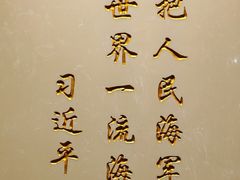 把人民海军
世界一流海
习近平